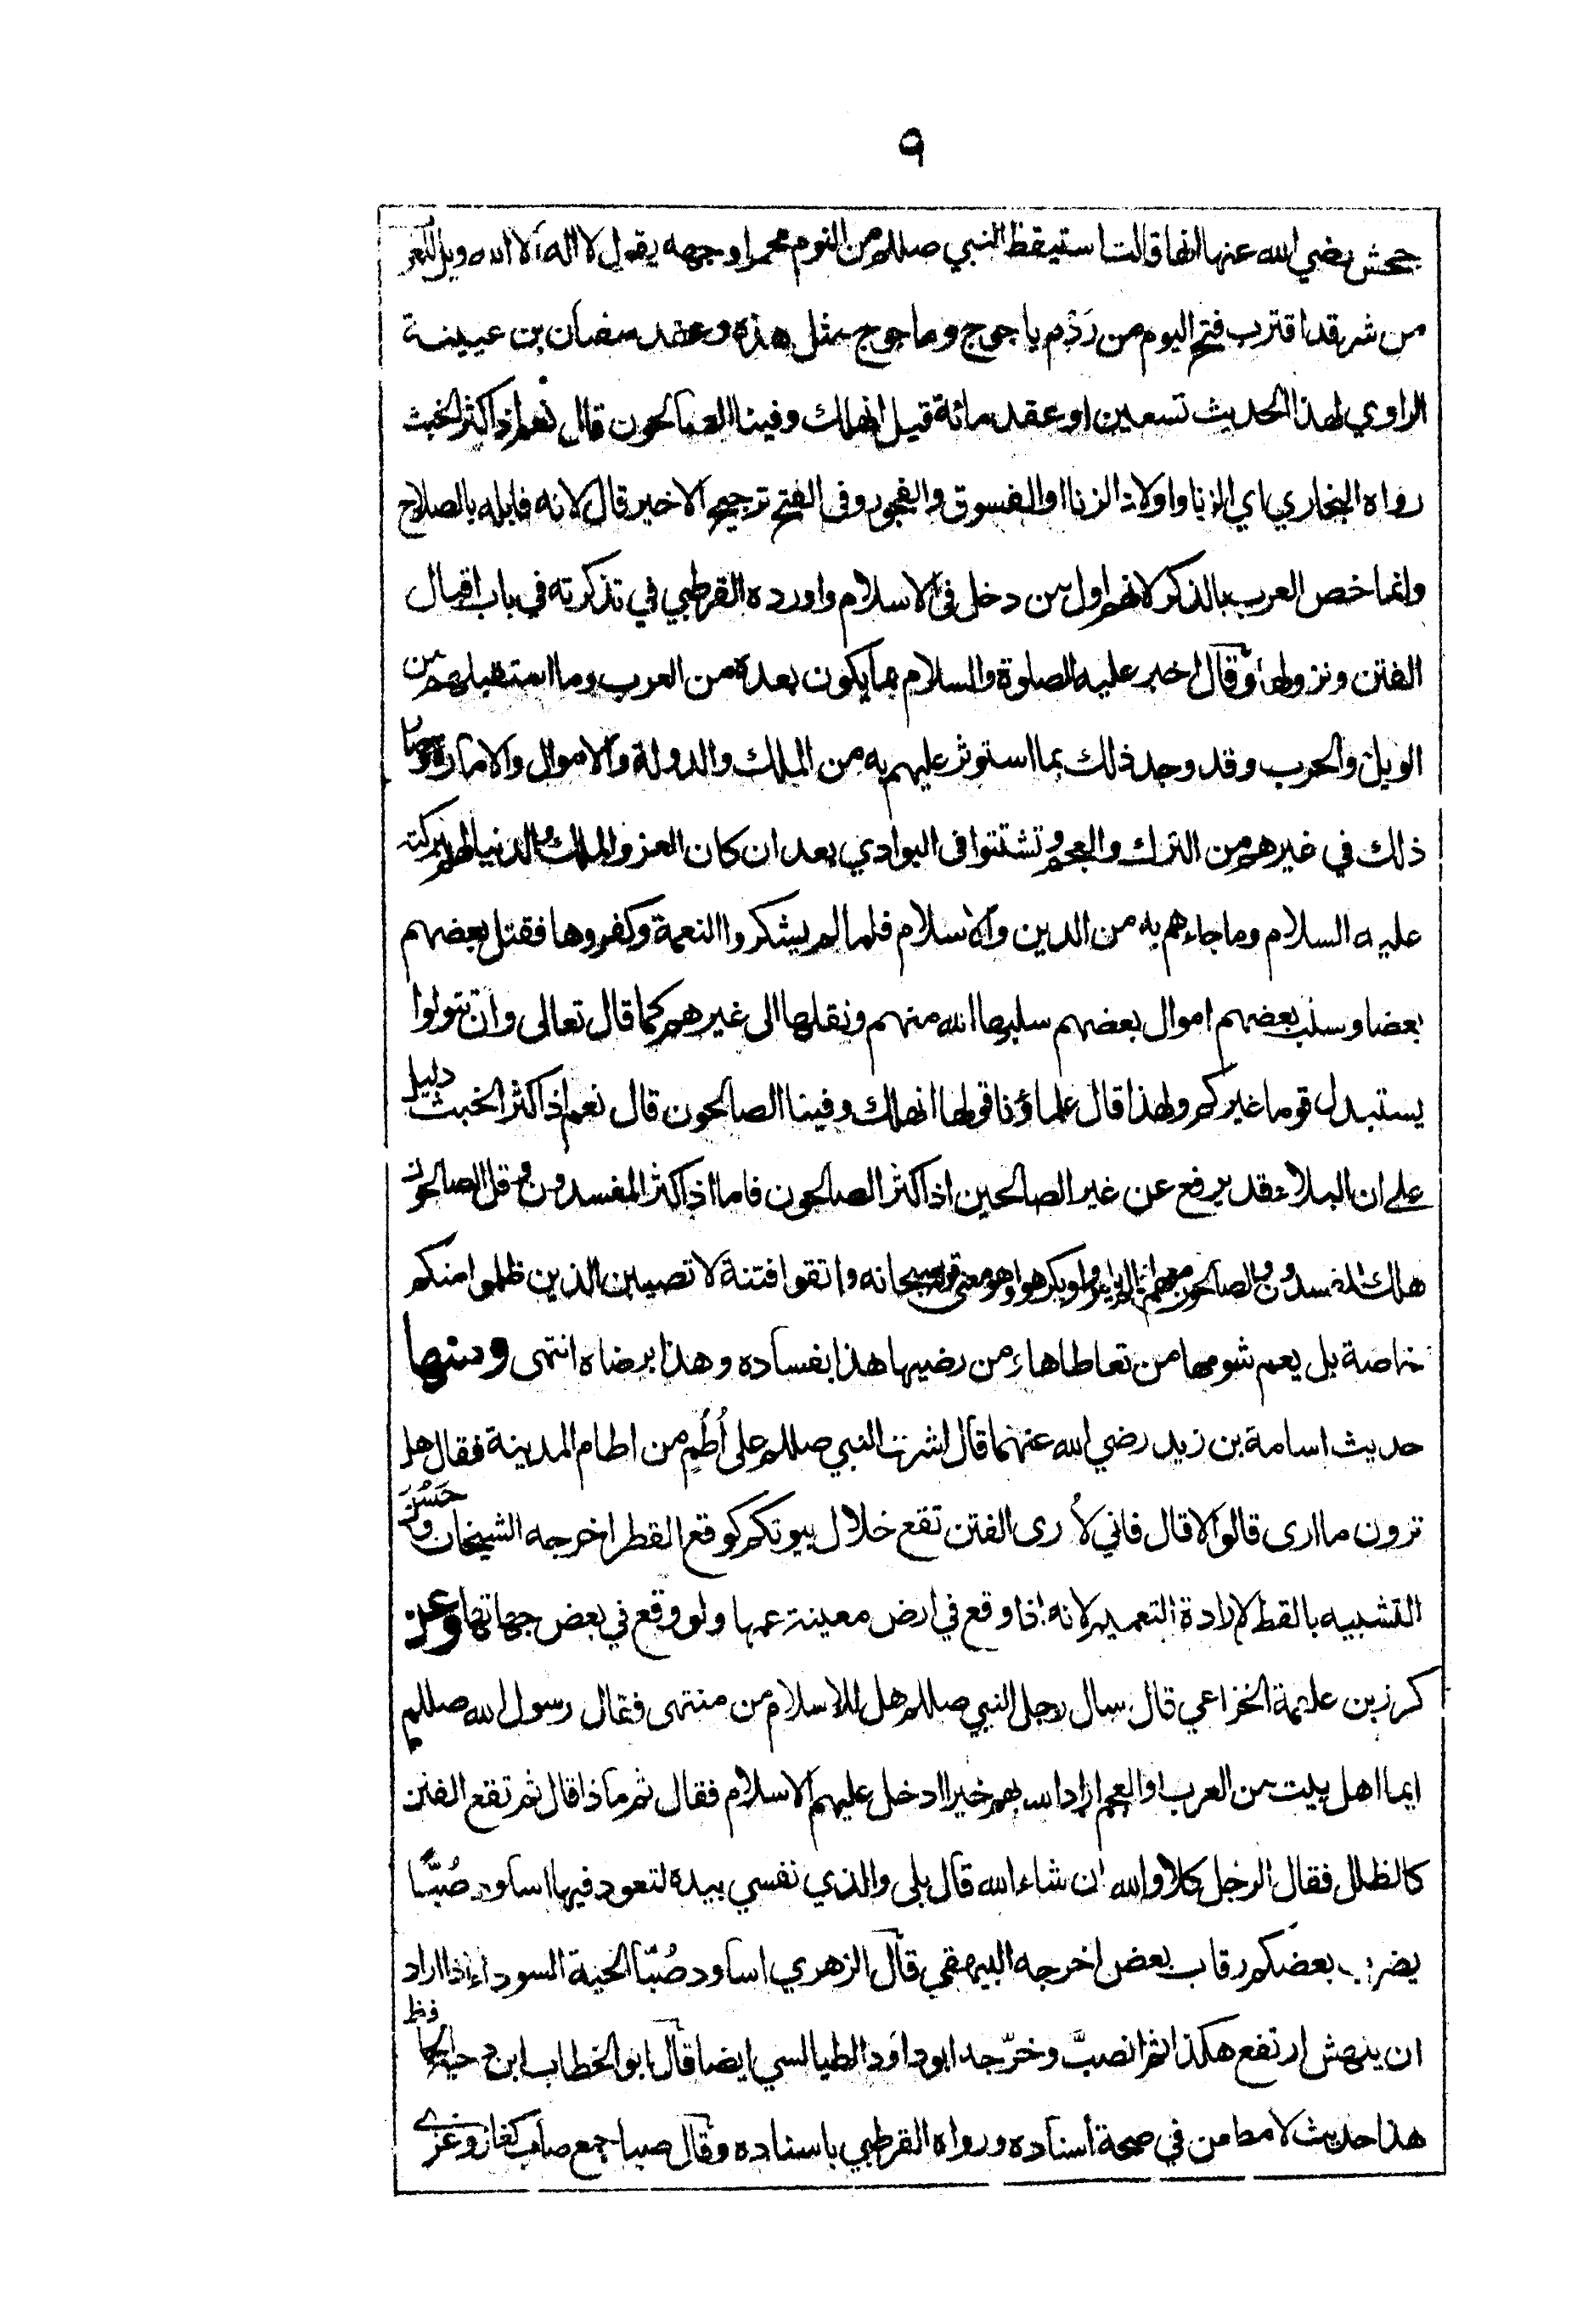 ٩
جحش رضي الله عنها انها قالت استيقظ النبي صللم من النوم محمرا وجهه يقول لا اله الا الله ويل للعر
من شر قد اقترب فتح اليوم من رَدْمِ ياجوج وماجوج مثل هذه وعقد سفيان بن عيينة
الراوي لهذا الحديث تسعين او عقد مائة قيل انهلك وفينا الصالحون قال نعم اذا كثر الخبث
رواه البخاري اي الزنا واولاد الزنا او الفسوق والفجور وفى الفتح ترجيح الاخير قال لانه قابله بالصلاح
وانما خص العرب بالذكر لانهم اول من دخل فى الاسلام واورده القرطبي في تذكرته في باب اقبال
الفتن ونزولها وقال اخبر عليه الصلوة والسلام بما يكون بعده من العرب وما استقبلهم من
الويل والحرب وقد وجد ذلك بما استوثر عليهم به من الملك والدولة والاموال والامارة وصا
ذلك في غيرهم من الترك والعجم وتشتتوا فى البوادي بعد ان كان العز والملك والدنيا لهم ببركته
عليه السلام وما جاءهم به من الدين والاسلام فلما لم يشكروا النعمة وكفروها فقتل بعضهم
بعضا وسلب بعضهم اموال بعضهم سلبها الله منهم ونقلها الى غيرهم كما قال تعالى وان تتولوا
يستبدل قوما غيركم ولهذا قال علماؤنا قولها انهلك وفينا الصالحون قال نعم اذا كثر الخبث دليل
على ان البلاء قد يرفع عن غير الصالحين اذا كثر الصالحون فاما اذا كثر المفسدون وقل الصالحون
هلك المفسدون والصالحون معهم اذا لم يامروا ويكرهوا وهو معنى قوله سبحانه واتقوا فتنة لا تصيبن الذين ظلموا منكم
خاصة بل يعم شومها من تعاطاها ومن رضيها هذا بفساده وهذا برضاه انتهى ومنها
حديث اسامة بن زيد رضي الله عنهما قال اشرف النبي صللم على أُطُمٍ من اطام المدينة فقال هل
ترون ما ارى قالوا لا قال فاني لأرى الفتن تقع خلال بيوتكم كوقع القطر اخرجه الشيخان وحَسُنَ
التشبيه بالقطر لارادة التعميم لانه اذا وقع في ارض معينة عمها ولو وقع في بعض جهاتها وعن
كرز بن علقمة الخزاعي قال سال رجل النبي صللم هل للاسلام من منتهى فقال رسول الله صللم
ايما اهل بيت من العرب او العجم اراد الله بهم خيرا ادخل عليهم الاسلام فقال ثم ماذا قال ثم تقع الفتن
كالظلل فقال الرجل كلا والله ان شاء الله قال بلى والذي نفسي بيده لتعود فيها اساود صُبًّا
يضرب بعضكم رقاب بعض اخرجه البيهقي قال الزهري اساود صُبًّا الحية السوداء اذا اراد
ان ينهش ارتفع هكذا ثم انصبَّ وخرّجه ابو داود الطيالسي ايضا قال ابو الخطاب ابن دحية الحافظ
هذا حديث لا مطا من في صحة اسناده ورواه القرطبي باسناده وقال صبا جمع صاب كغاز وغزى